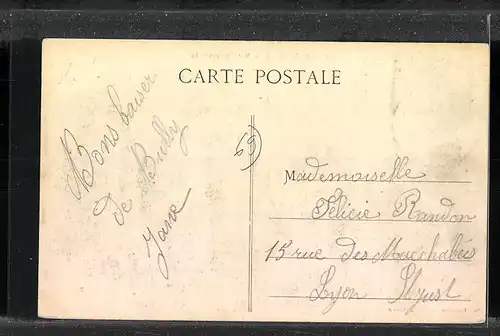 CARTE POSTALE
Bons baiser
de Bully
Jane
69
Mademoiselle
Félicie Randon
15 rue des Macchabés
Lyon St Just